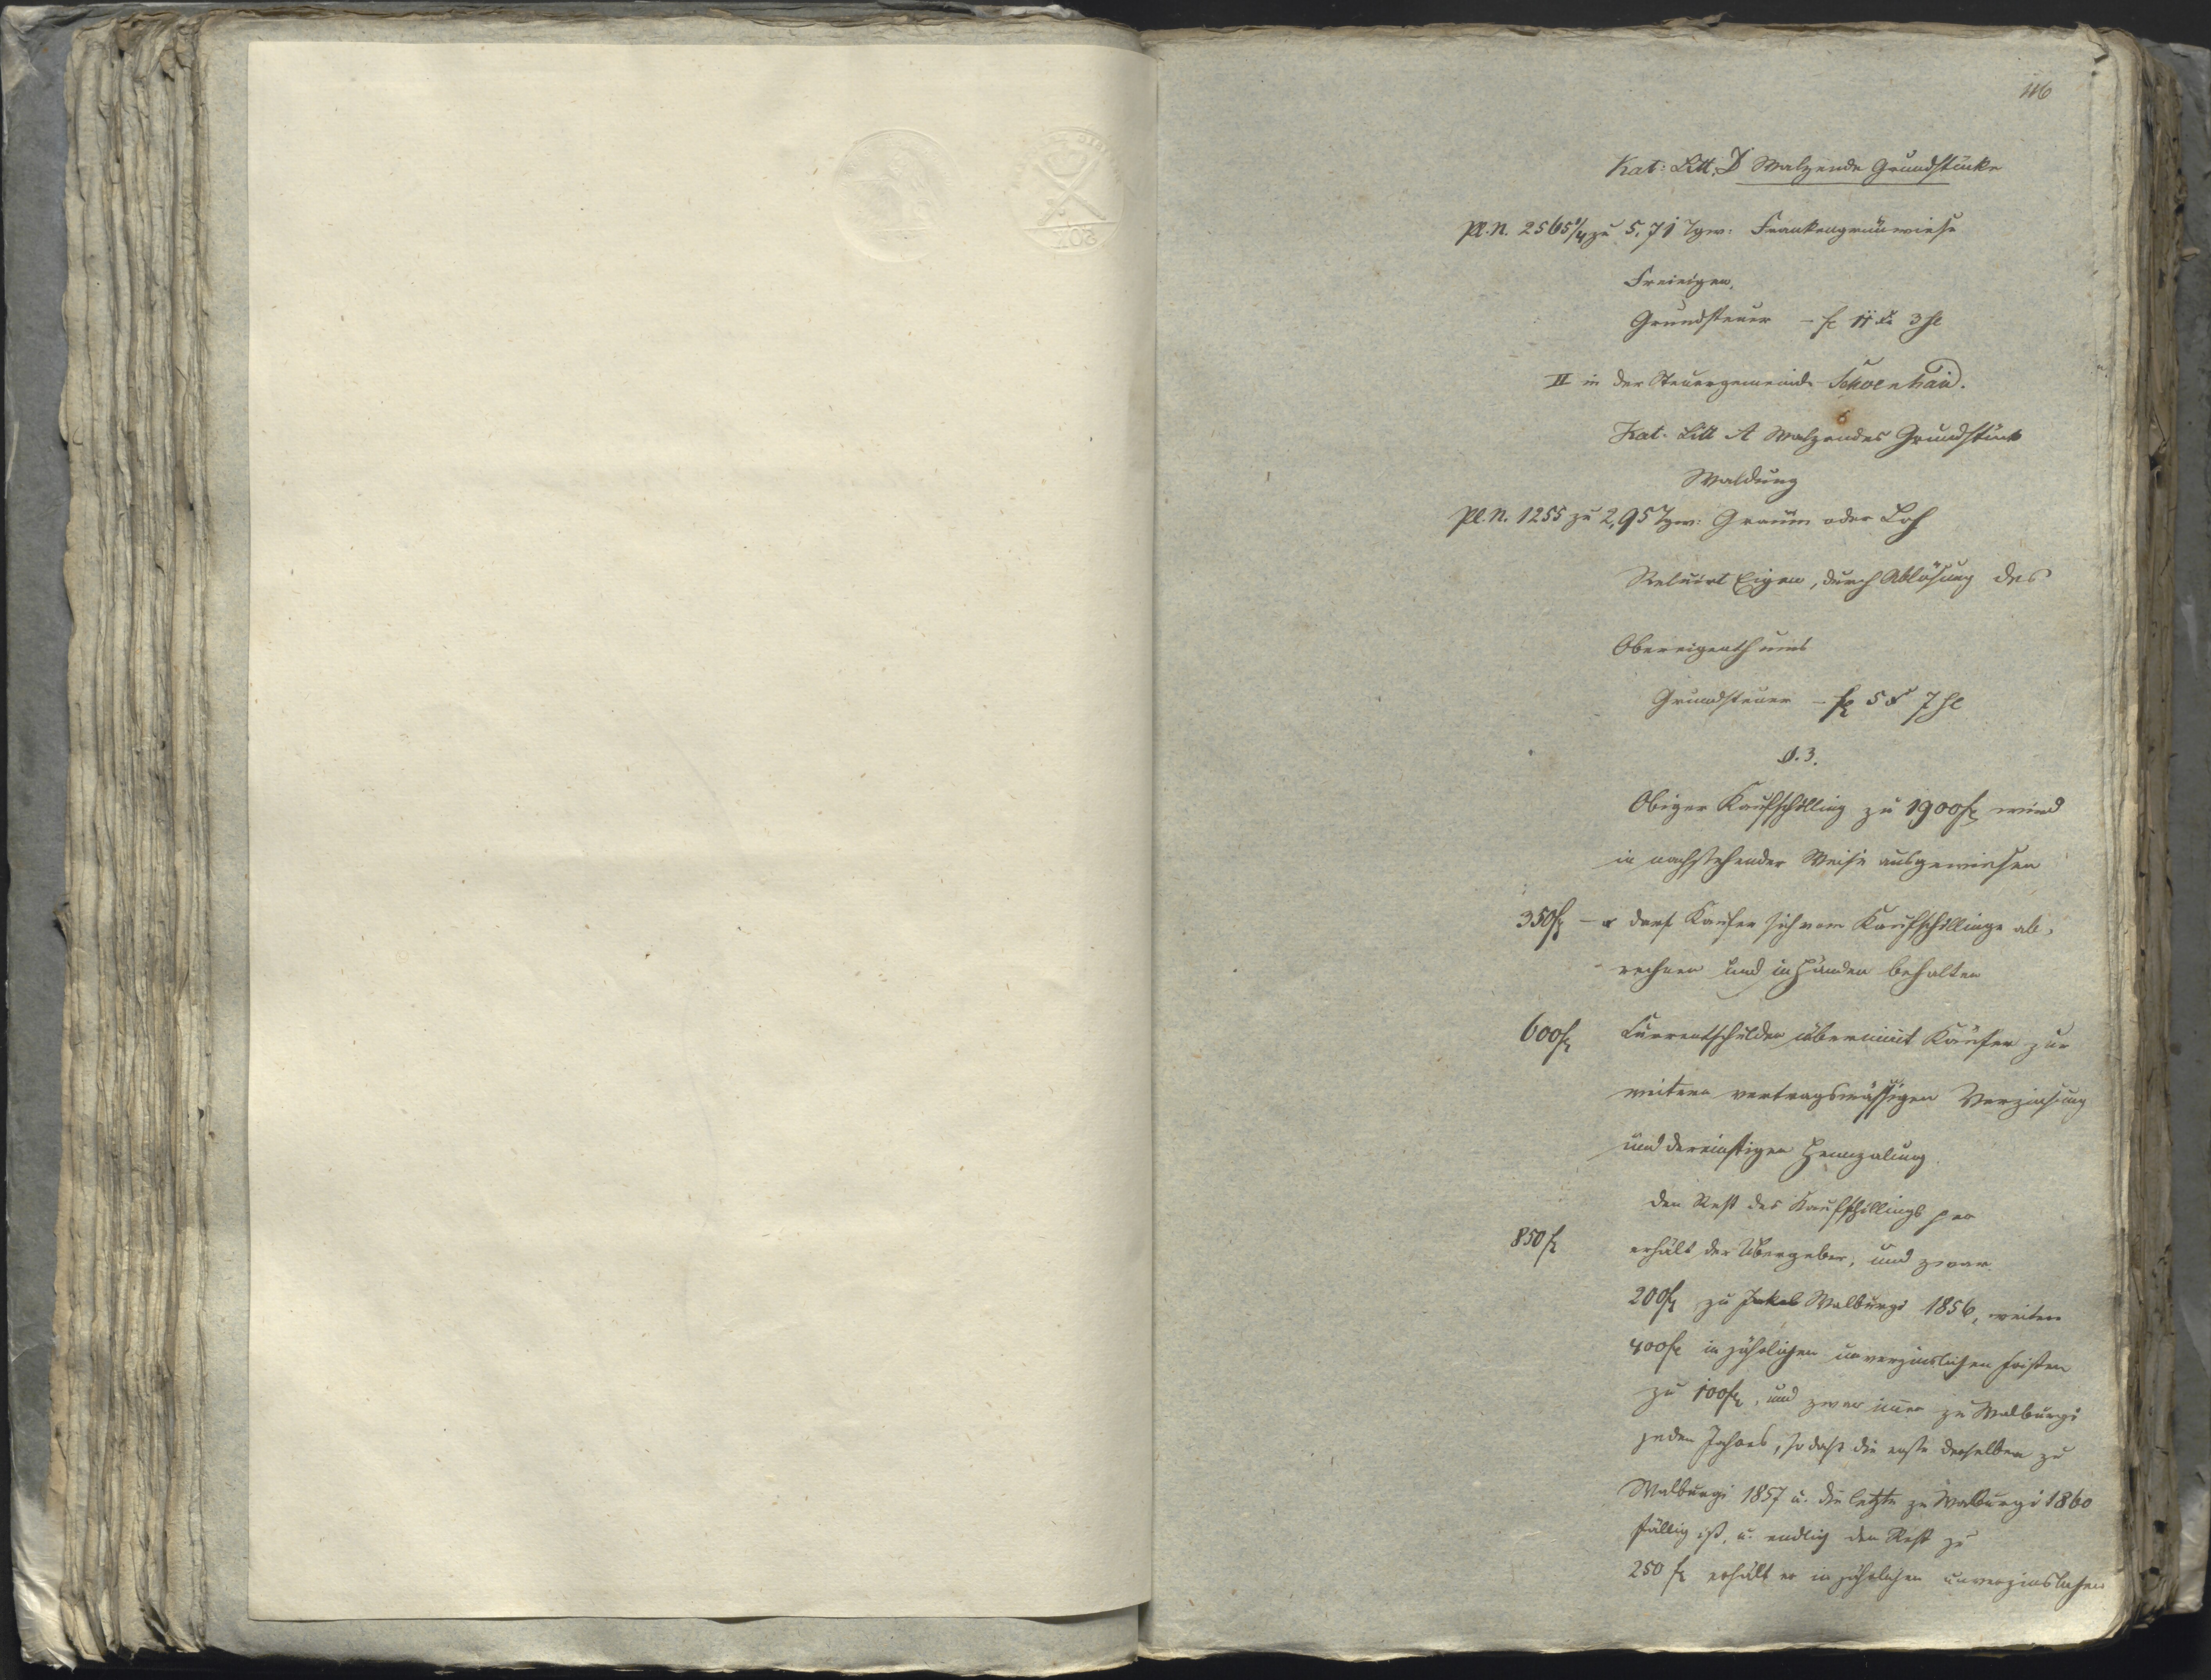 116
Kat: Litt. D Walzende Grundstücke
Pl. N. 2565 1/4 zu 5,71 Tgw: Frankengrünwiese
Freieigen.
Grundsteuer – f 11 x 3 hl
II in der Steuergemeinde Schoenhaid.
Kat. Litt A Walzendes Grundstück
Waldung
Pl. N. 1255 zu 2,95 Tgw: oder Loh
Reluirt Eigen, durch Ablösung des
Obereigenthums
Grundsteuer – f 5 x 7 hl
§. 3.
Obiger Kaufschilling zu 1900 f wird
in nachstehender Weise ausgewiesen
350 f – x darf Kaufer sich vom Kaufschillinge ab,
rechnen und in Händen behalten
600 f Currentschulden übernimt Käufer zur
weitern vertragsmäßigen Verzinsung
und dereinstigen Heimzalung.
den Rest des Kaufschillings per
850 f erhält der Übergeber, und zwar
200 f zu Jakob Walburgi 1856, weitere
400 f in jährlichen unverzinslichen Fristen
zu 100 f, und zwar immer zu Walburgi
jeden Jahres, so daß die erste derselben zu
Walburgi 1857 u. die letzte zu Walburgi 1860
fällig ist, u. endlich den Rest zu
250 f erhält er in jährlichen unverzinslichen